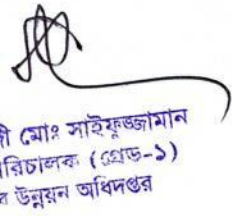 মোঃ সাইফুজ্জামান
(গ্রেড-১)
উন্নয়ন অধিদপ্তর